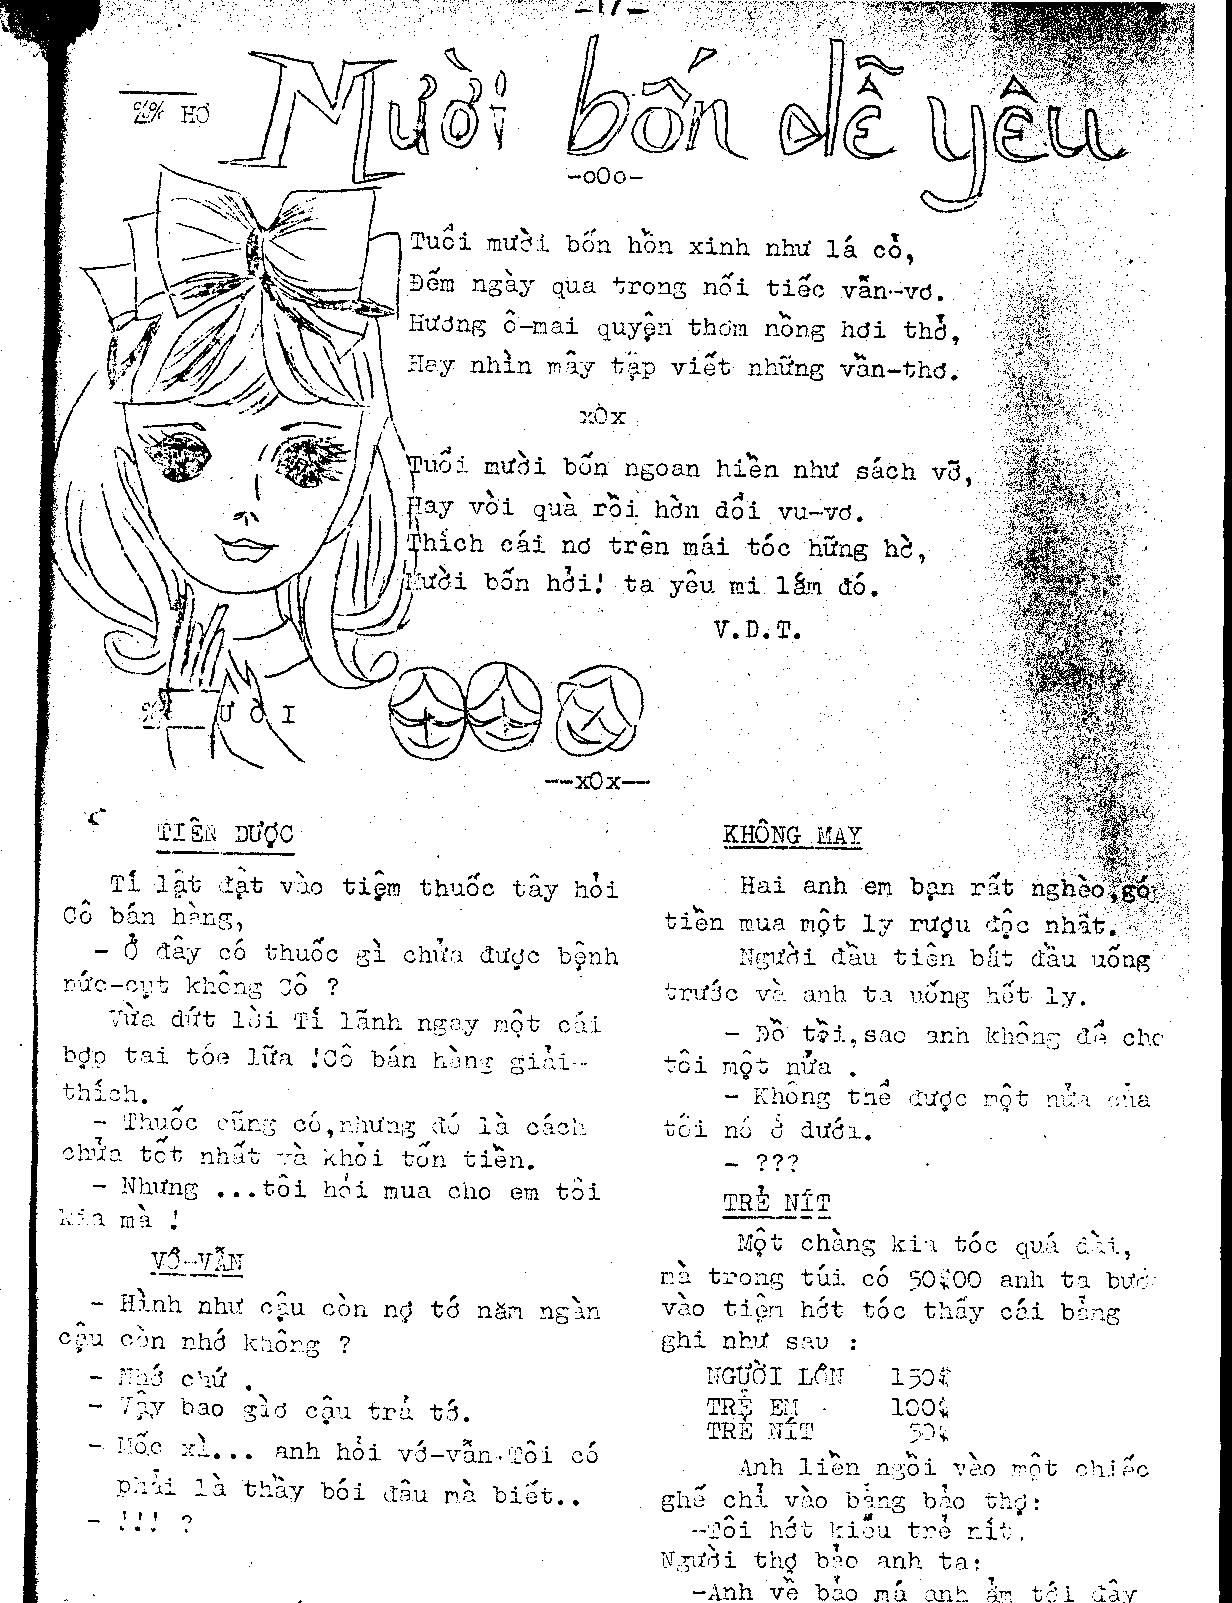 -17-
HƠ
Mười bốn dễ yêu
-oOo-
Tuổi mười bốn hồn xinh như lá cỏ,
Đếm ngày qua trong nối tiếc vẩn-vơ.
Hương ô-mai quyện thơm nồng hơi thở,
Hay nhìn mây tập viết những vần-thơ.
xOx
Tuổi mười bốn ngoan hiền như sách vỡ,
Hay vòi quà rồi hờn dổi vu-vơ.
Thích cái nơ trên mái tóc hững hờ,
Mười bốn hởi! ta yêu mi lắm đó.
V.D.T.
ƯỜI
--xOx--
TIÊN DƯỢC
Tí lật đật vào tiệm thuốc tây hỏi
Cô bán hàng,
- Ở đây có thuốc gì chửa được bệnh
nức-cụt không Cô ?
Vừa dứt lời Tí lãnh ngay một cái
bợp tai tóe lữa !Cô bán hàng giải-
thích.
- Thuốc cũng có,nhưng đó là cách
chửa tốt nhất và khỏi tốn tiền.
- Nhưng ...tôi hỏi mua cho em tôi
kia mà !
VỚ-VẪN
- Hình như cậu còn nợ tớ năm ngàn
cậu còn nhớ không ?
- Nhớ chứ .
- Vậy bao giờ cậu trả tớ.
- Mốc xì... anh hỏi vớ-vẫn.Tôi có
phải là thầy bói đâu mà biết..
- !!! ?
KHÔNG MAY
Hai anh em bạn rất nghèo,góp
tiền mua một ly rượu độc nhất.
Người đầu tiên bắt đầu uống
trước và anh ta uống hết ly.
- Đồ tồi,sao anh không để cho
tôi một nửa .
- Không thể được một nửa của
tôi nó ở dưới.
- ???
TRẺ NÍT
Một chàng kia tóc quá dài,
mà trong túi có 50$00 anh ta bước
vào tiệm hớt tóc thấy cái bảng
ghi như sau :
NGƯỜI LỚN 150$
TRẺ EM 100$
TRẺ NÍT 50$
Anh liền ngồi vào một chiếc
ghế chỉ vào bảng bảo thợ:
-Tôi hớt kiểu trẻ nít.
Người thợ bảo anh ta:
-Anh về bảo má anh ẳm tới đây